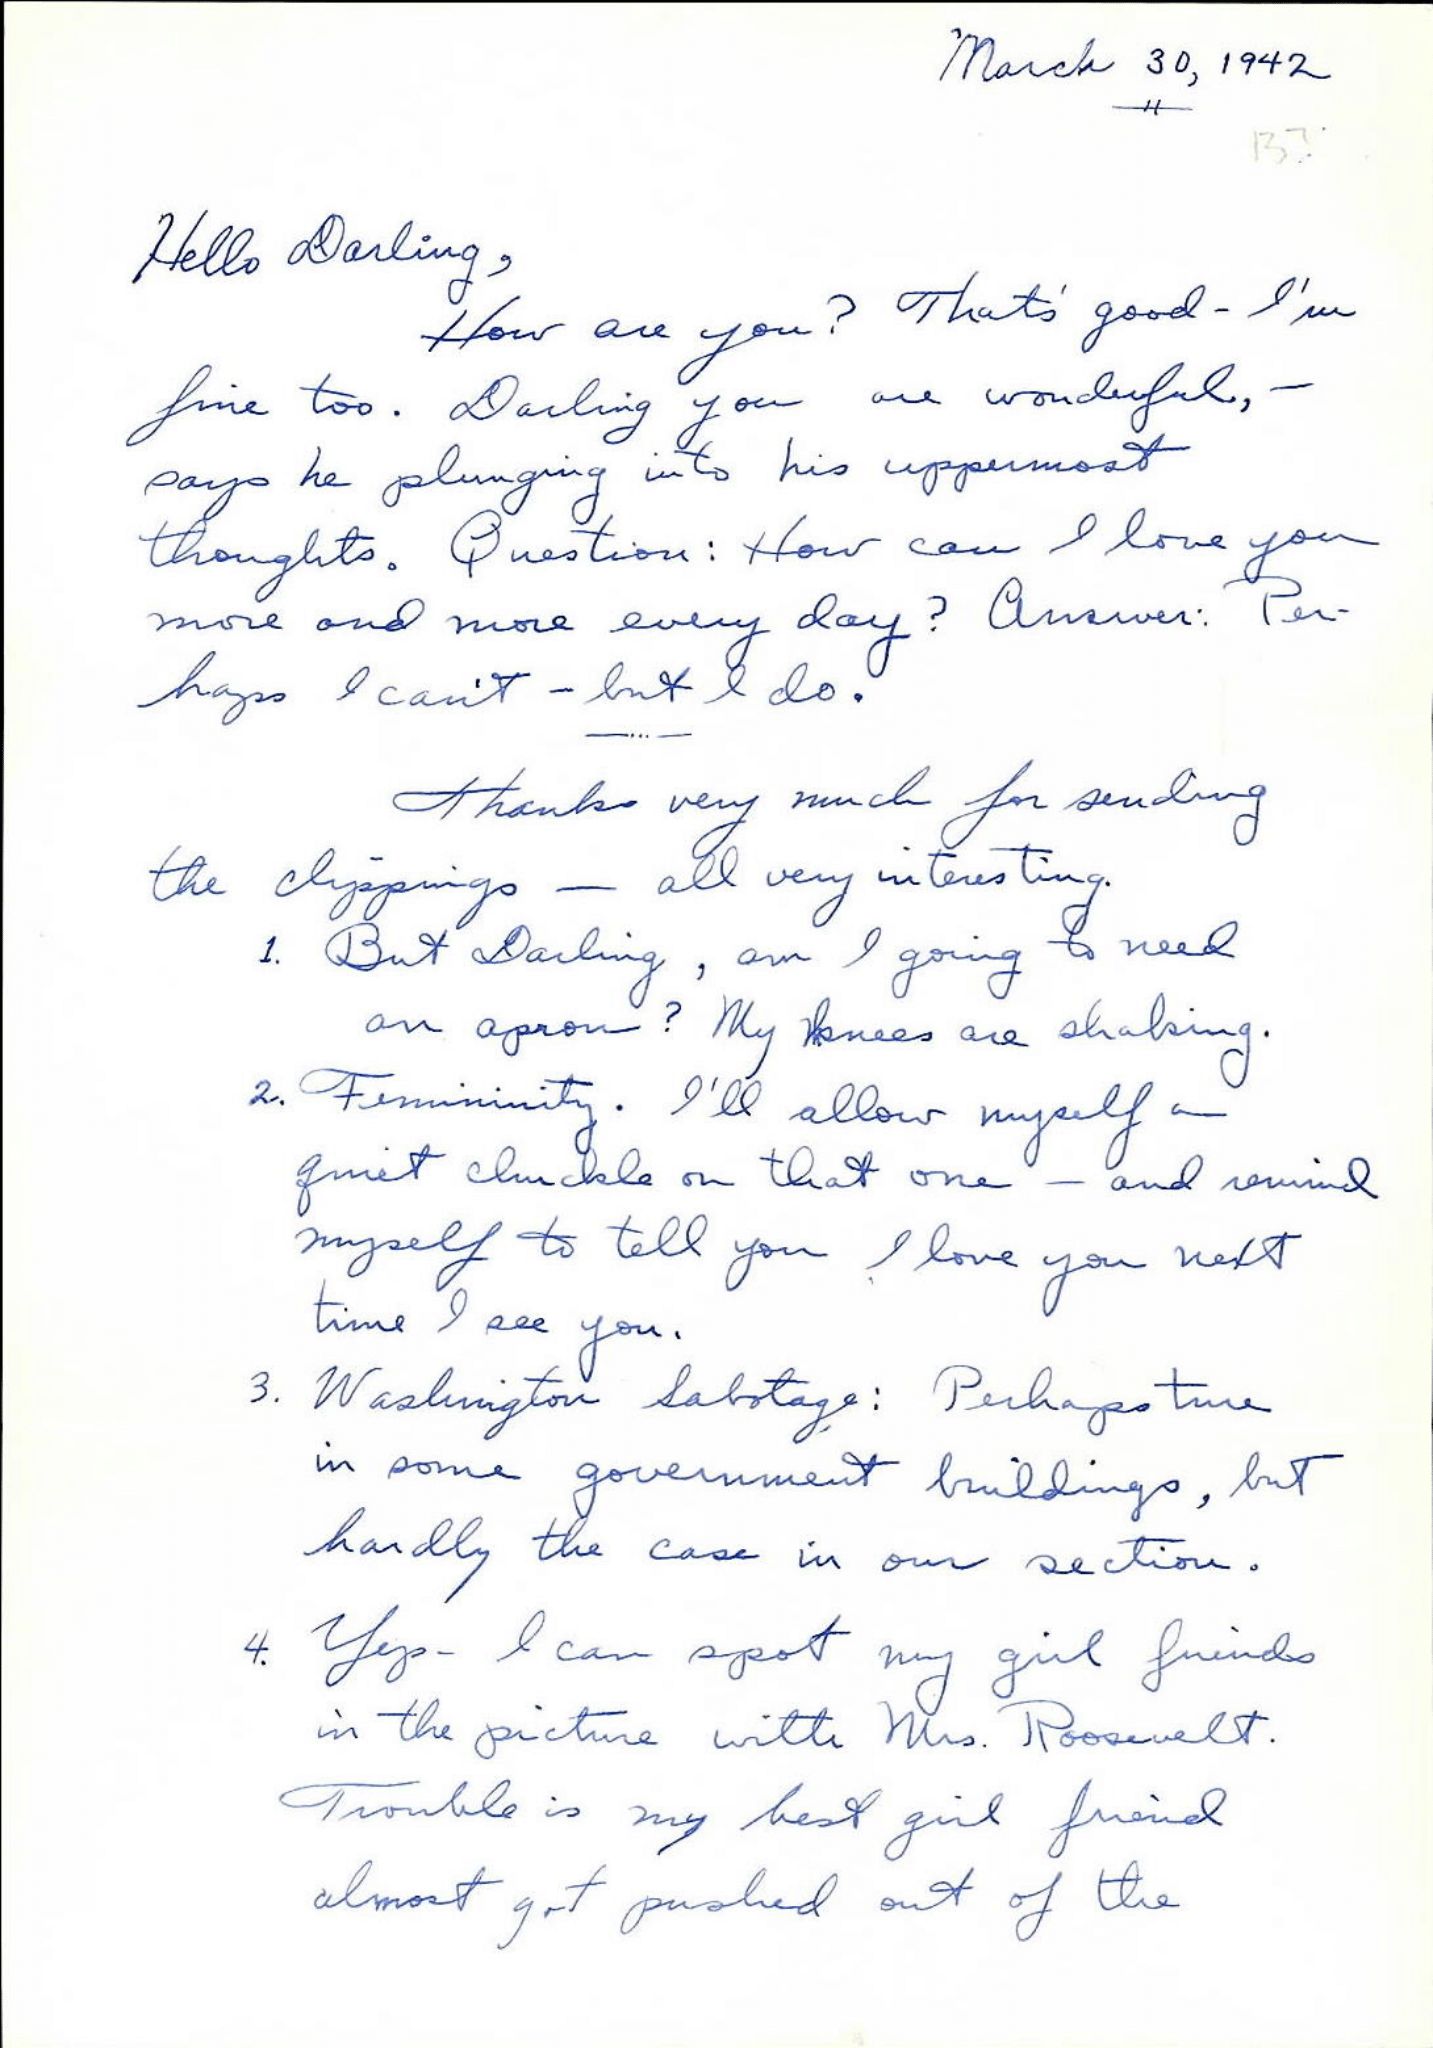 March 30, 1942
Hello Darling,
How are you? That's good - I'm
fine too. Darling you are wonderful, -
says he plunging into his uppermost
thoughts. Question: How can I love you
more and more every day? Answer: Per-
haps I can't - but I do.
Thanks very much for sending
the clippings — all very interesting.
1. But Darling, am I going to need
an apron? My knees are shaking.
2. Femininity. I'll allow myself a
quiet chuckle on that one — and remind
myself to tell you I love you next
time I see you.
3. Washington Sabotage: Perhaps true
in some government buildings, but
hardly the case in our section.
4. Yep - I can spot my girl friends
in the picture with Mrs. Roosevelt.
Trouble is my best girl friend
almost got pushed out of the